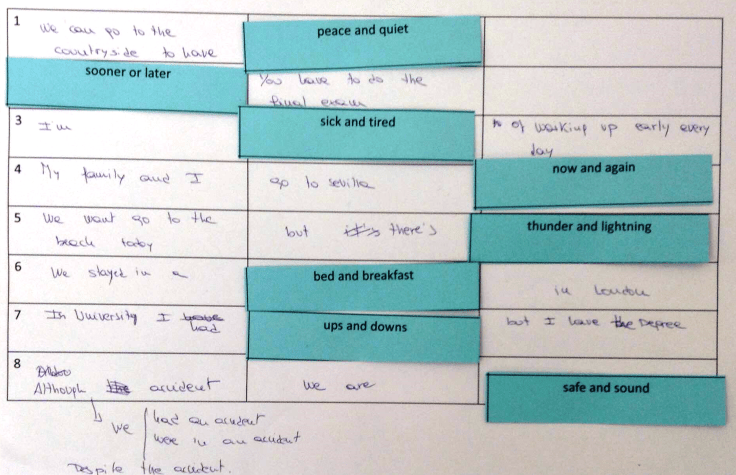 1 We can go to the countryside to have peace and quiet
sooner or later You have to do the final exam
3 I'm sick and tired of working up early every day
4 My family and I go to sevilla now and again
5 We want go to the beach today but it's there's thunder and lightning
6 We stayed in a bed and breakfast in London
7 In University I have had ups and downs but I have the Degree
8 Although the accident We are safe and sound
We had an acudent
were in an acudent
Despite the acudent.